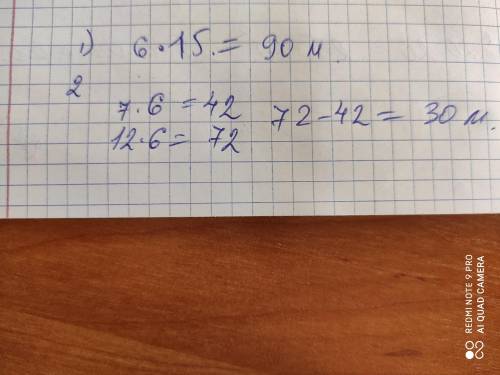 1) 6·15.= 90 м.
2
7·6 = 42 72-42= 30 м.
12·6= 72
REDMI NOTE 9 PRO
AI QUAD CAMERA